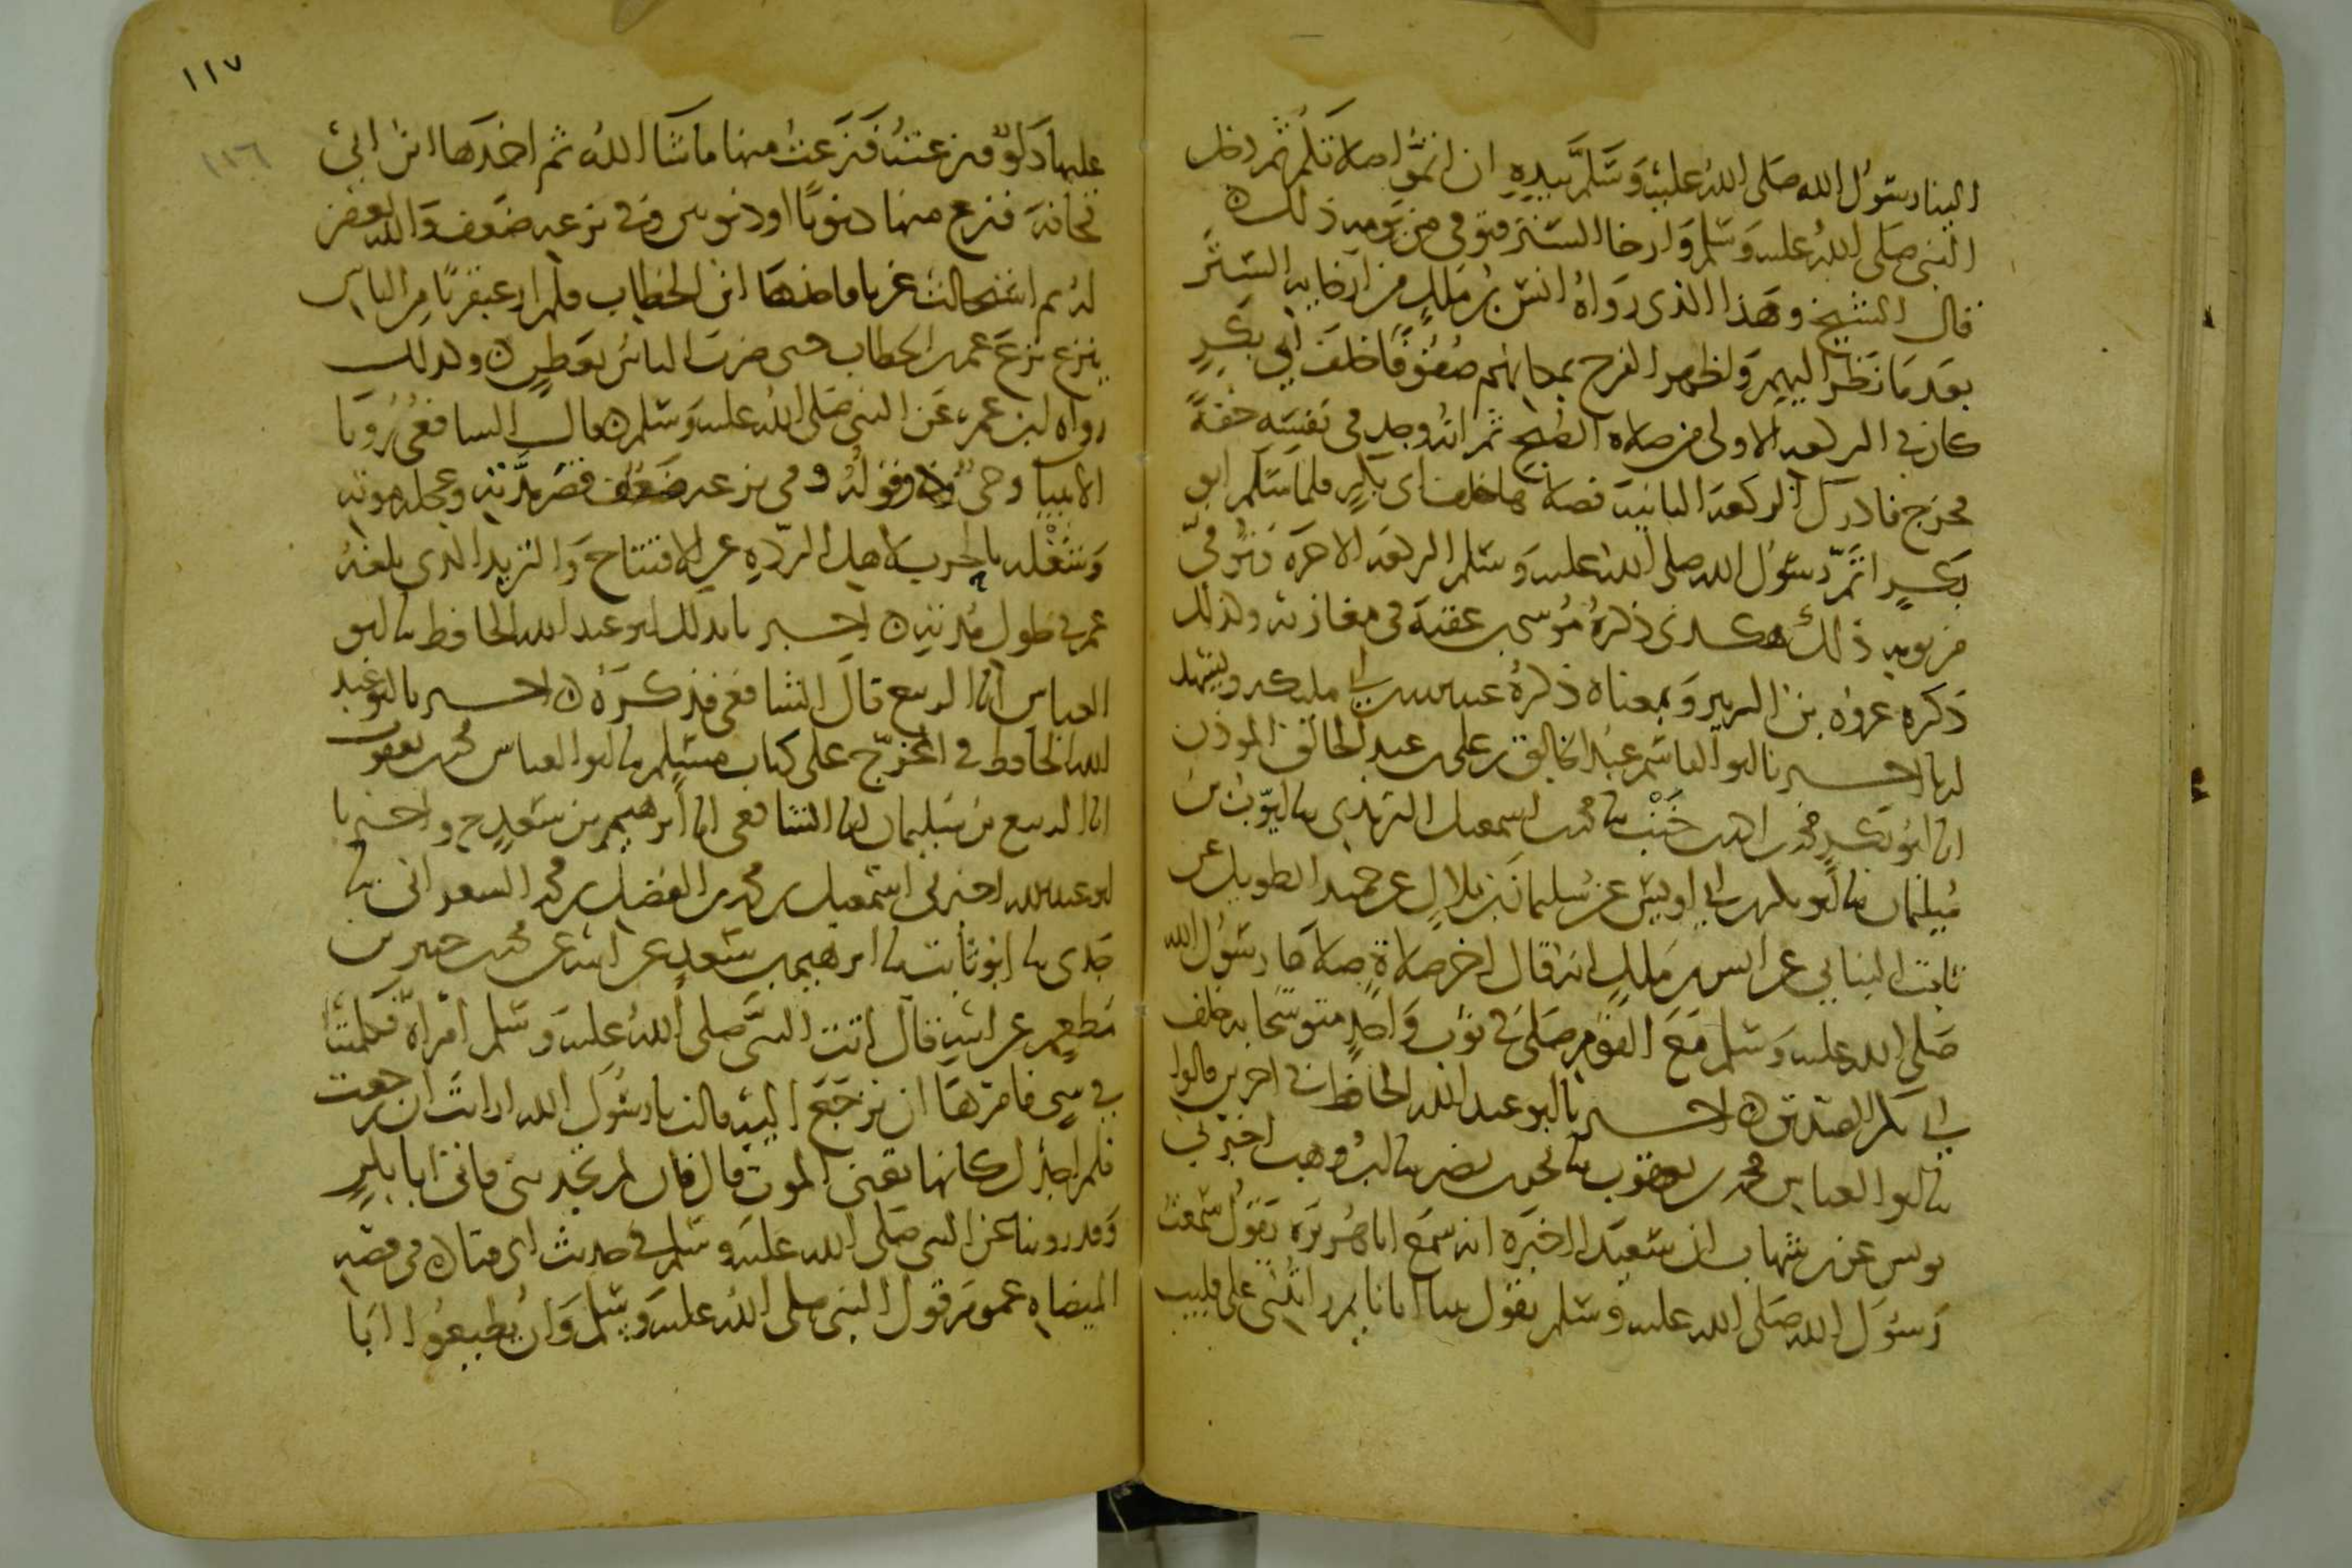 الينا رسول الله صلى الله عليه وسلم بيده ان اتموا صلاتكم ثم دخل
النبي صلى الله عليه وسلم وارخا الستر فتوفي من يومه ذلك
قال الشيخ وهذا الذي رواه انس بن ملك من ارخايه الستر
بعد ما نظر اليهم واظهر الفرح بمكانهم صفوفا خلف ابي بكر
كان في الركعه الاولى من صلاه الصبح ثم انه وجد في نفسه خفة
فخرج فادرك الركعه الثانيه فصلاها خلف ابي بكر فلما سلم ابو
بكر اتم رسول الله صلى الله عليه وسلم الركعه الاخره وتوفي
من يومه ذلك هكذى ذكره موسى بن عقبة في مغازيه وكذلك
ذكره عروه بن الزبير وبمعناه ذكره عبد الله بن ابي مليكه ويشهد
لهما اخبرنا ابو القاسم عبد الخالق بن علي بن عبد الخالق المؤذن
انا ابو بكر محمد بن احمد بن خنب نا محمد بن اسمعيل الترمذي نا ايوب بن
سليمان نا ابو بكر بن ابي اويس عن سليمان بن بلال عن حميد الطويل عن
ثابت البناني عن انس بن ملك انه قال اخر صلاة صلاها رسول الله
صلى الله عليه وسلم مع القوم صلى في ثوب واحد متوشحا به خلف
ابي بكر الصديق اخبرنا ابو عبد الله الحافظ في اخرين قالوا
نا ابو العباس محمد بن يعقوب نا بحر بن نصر نا ابن وهب اخبرني
يونس عن بن شهاب ان سعيدا اخبره انه سمع ابا هريره يقول سمعت
رسول الله صلى الله عليه وسلم يقول بينا انا نايم رايتني على قليب
١١٧
١١٦
عليها دلو فنزعت منها ما شا الله ثم اخذها ابن ابي
قحافة فنزع منها ذنوبا او ذنوبين وفي نزعه ضعف والله يغفر
له ثم استحالت غربا فاخذها ابن الخطاب فلم ار عبقريا من الناس
ينزع نزع عمر بن الخطاب حتى ضرب الناس بعطن وكذلك
رواه ابن عمر عن النبي صلى الله عليه وسلم قال الشافعي رويا
الانبيا وحي وقوله وفي نزعه ضعف قصر مدته وعجله موته
وشغله بالحرب لاهل الردة عن الافتتاح والتزيد الذي بلغه
عمر في طول مدته اخبرنا بذلك ابو عبد الله الحافظ نا ابو
العباس انا الربيع قال الشافعي فذكره اخبرنا ابو عبد
الله الحافظ في المخرج على كتاب مسلم نا ابو العباس محمد بن يعقوب
انا الربيع بن سليمان انا الشافعي انا ابرهيم بن سعد ح واخبرنا
ابو عبد الله اخبرني اسمعيل بن محمد بن الفضل بن محمد الشعراني نا
جدي نا ابو ثابت نا ابرهيم بن سعد عن ابيه عن محمد بن جبير بن
مطعم عن ابيه قال اتت النبي صلى الله عليه وسلم امراة فكلمته
في شي فامرها ان ترجع اليه قالت يا رسول الله ارايت ان رجعت
فلم اجدك كانها تعني الموت قال فان لم تجديني فاتي ابا بكر
وقد روينا عن النبي صلى الله عليه وسلم في حديث ابي قتاده في قصه
الميضاه عموم قول النبي صلى الله عليه وسلم وان يطيعوا ابا